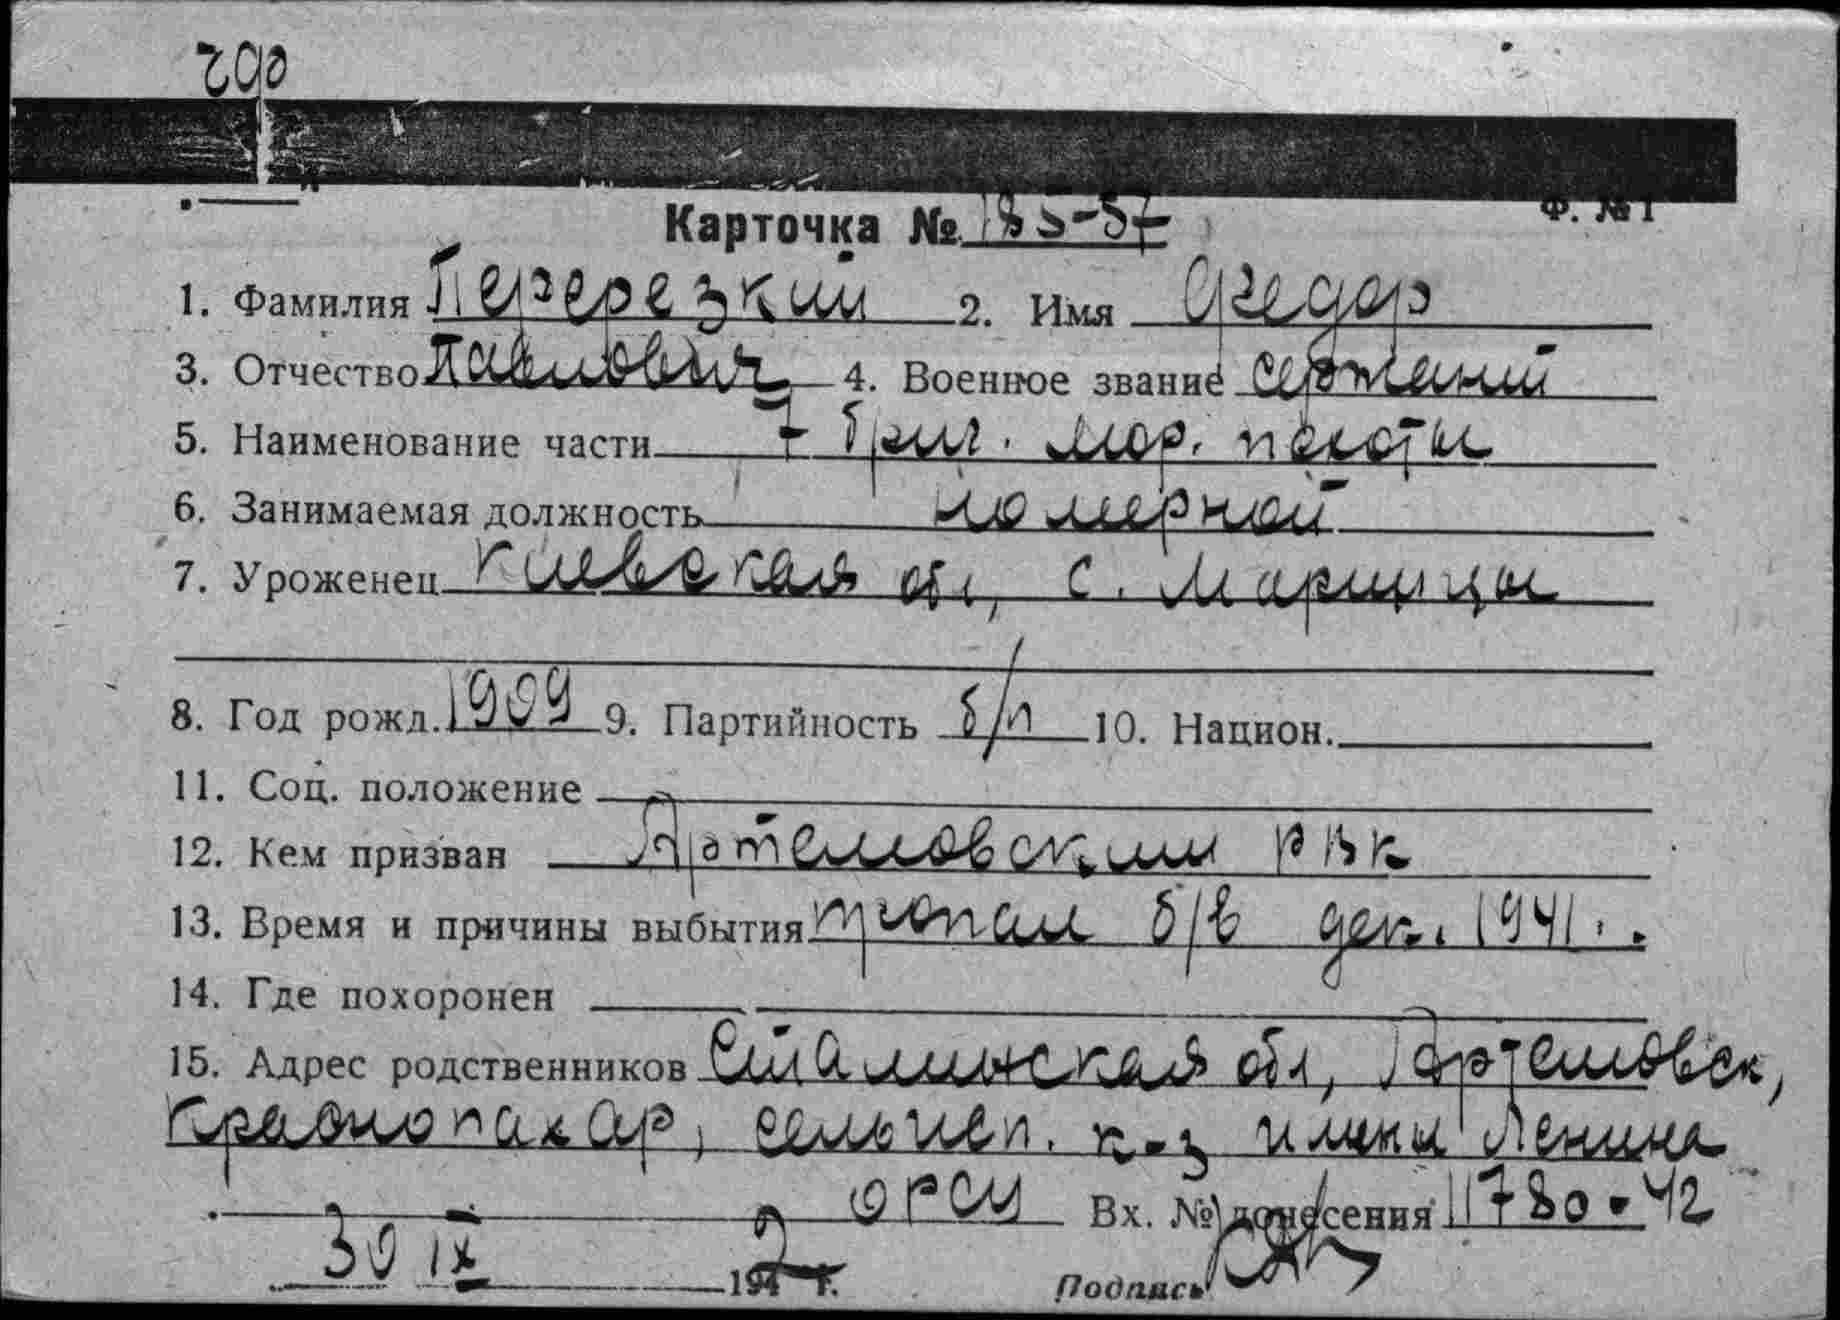 Ф. № 1
Карточка № 185-57
1. Фамилия Перерезкий 2. Имя Федор
3. Отчество Павлович 4. Военное звание сержант
5. Наименование части 7 бриг. мор. пехоты
6. Занимаемая должность померной
7. Уроженец Киевская обл, с. Маринцы
8. Год рожд. 1909 9. Партийность б/п 10. Национ.
11. Соц. положение
12. Кем призван Артемовским рвк
13. Время и причины выбытия пропал б/в дек. 1941.
14. Где похоронен
15. Адрес родственников Сталинская обл, Артемовск,
Краснопахар, сельисп. к-з имени Ленина
Вх. № донесения 11780-42
30 IX 1942 г. Подпись